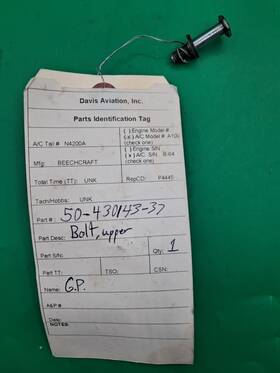 Davis Aviation, Inc.
Parts Identification Tag
A/C Tail # N4200A
( ) Engine Model #
(x) A/C Model # A100
(check one)
Mfg: BEECHCRAFT
( ) Engine S/N
(x) A/C S/N B-84
(check one)
Total Time (TT): UNK
RepCD: P4445
Tach/Hobbs: UNK
Part #: 50-430143-37
Part Desc: Bolt, upper
Part S/N:
Qty: 1
Part TT:
TSO:
CSN:
Name: G.P.
A&P #
Date:
NOTES: